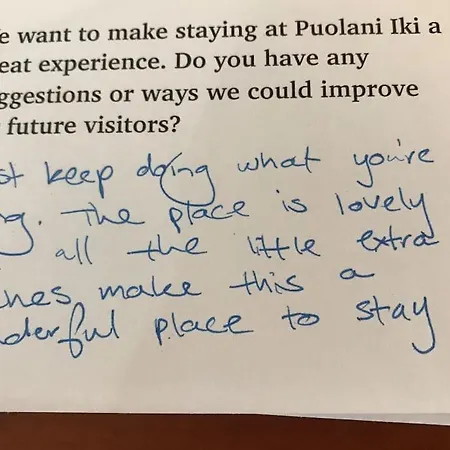 e want to make staying at Puolani Iki a
eat experience. Do you have any
ggestions or ways we could improve
future visitors?
st keep doing what you're
ng. The place is lovely
all the little extra
hes make this a
derful place to stay